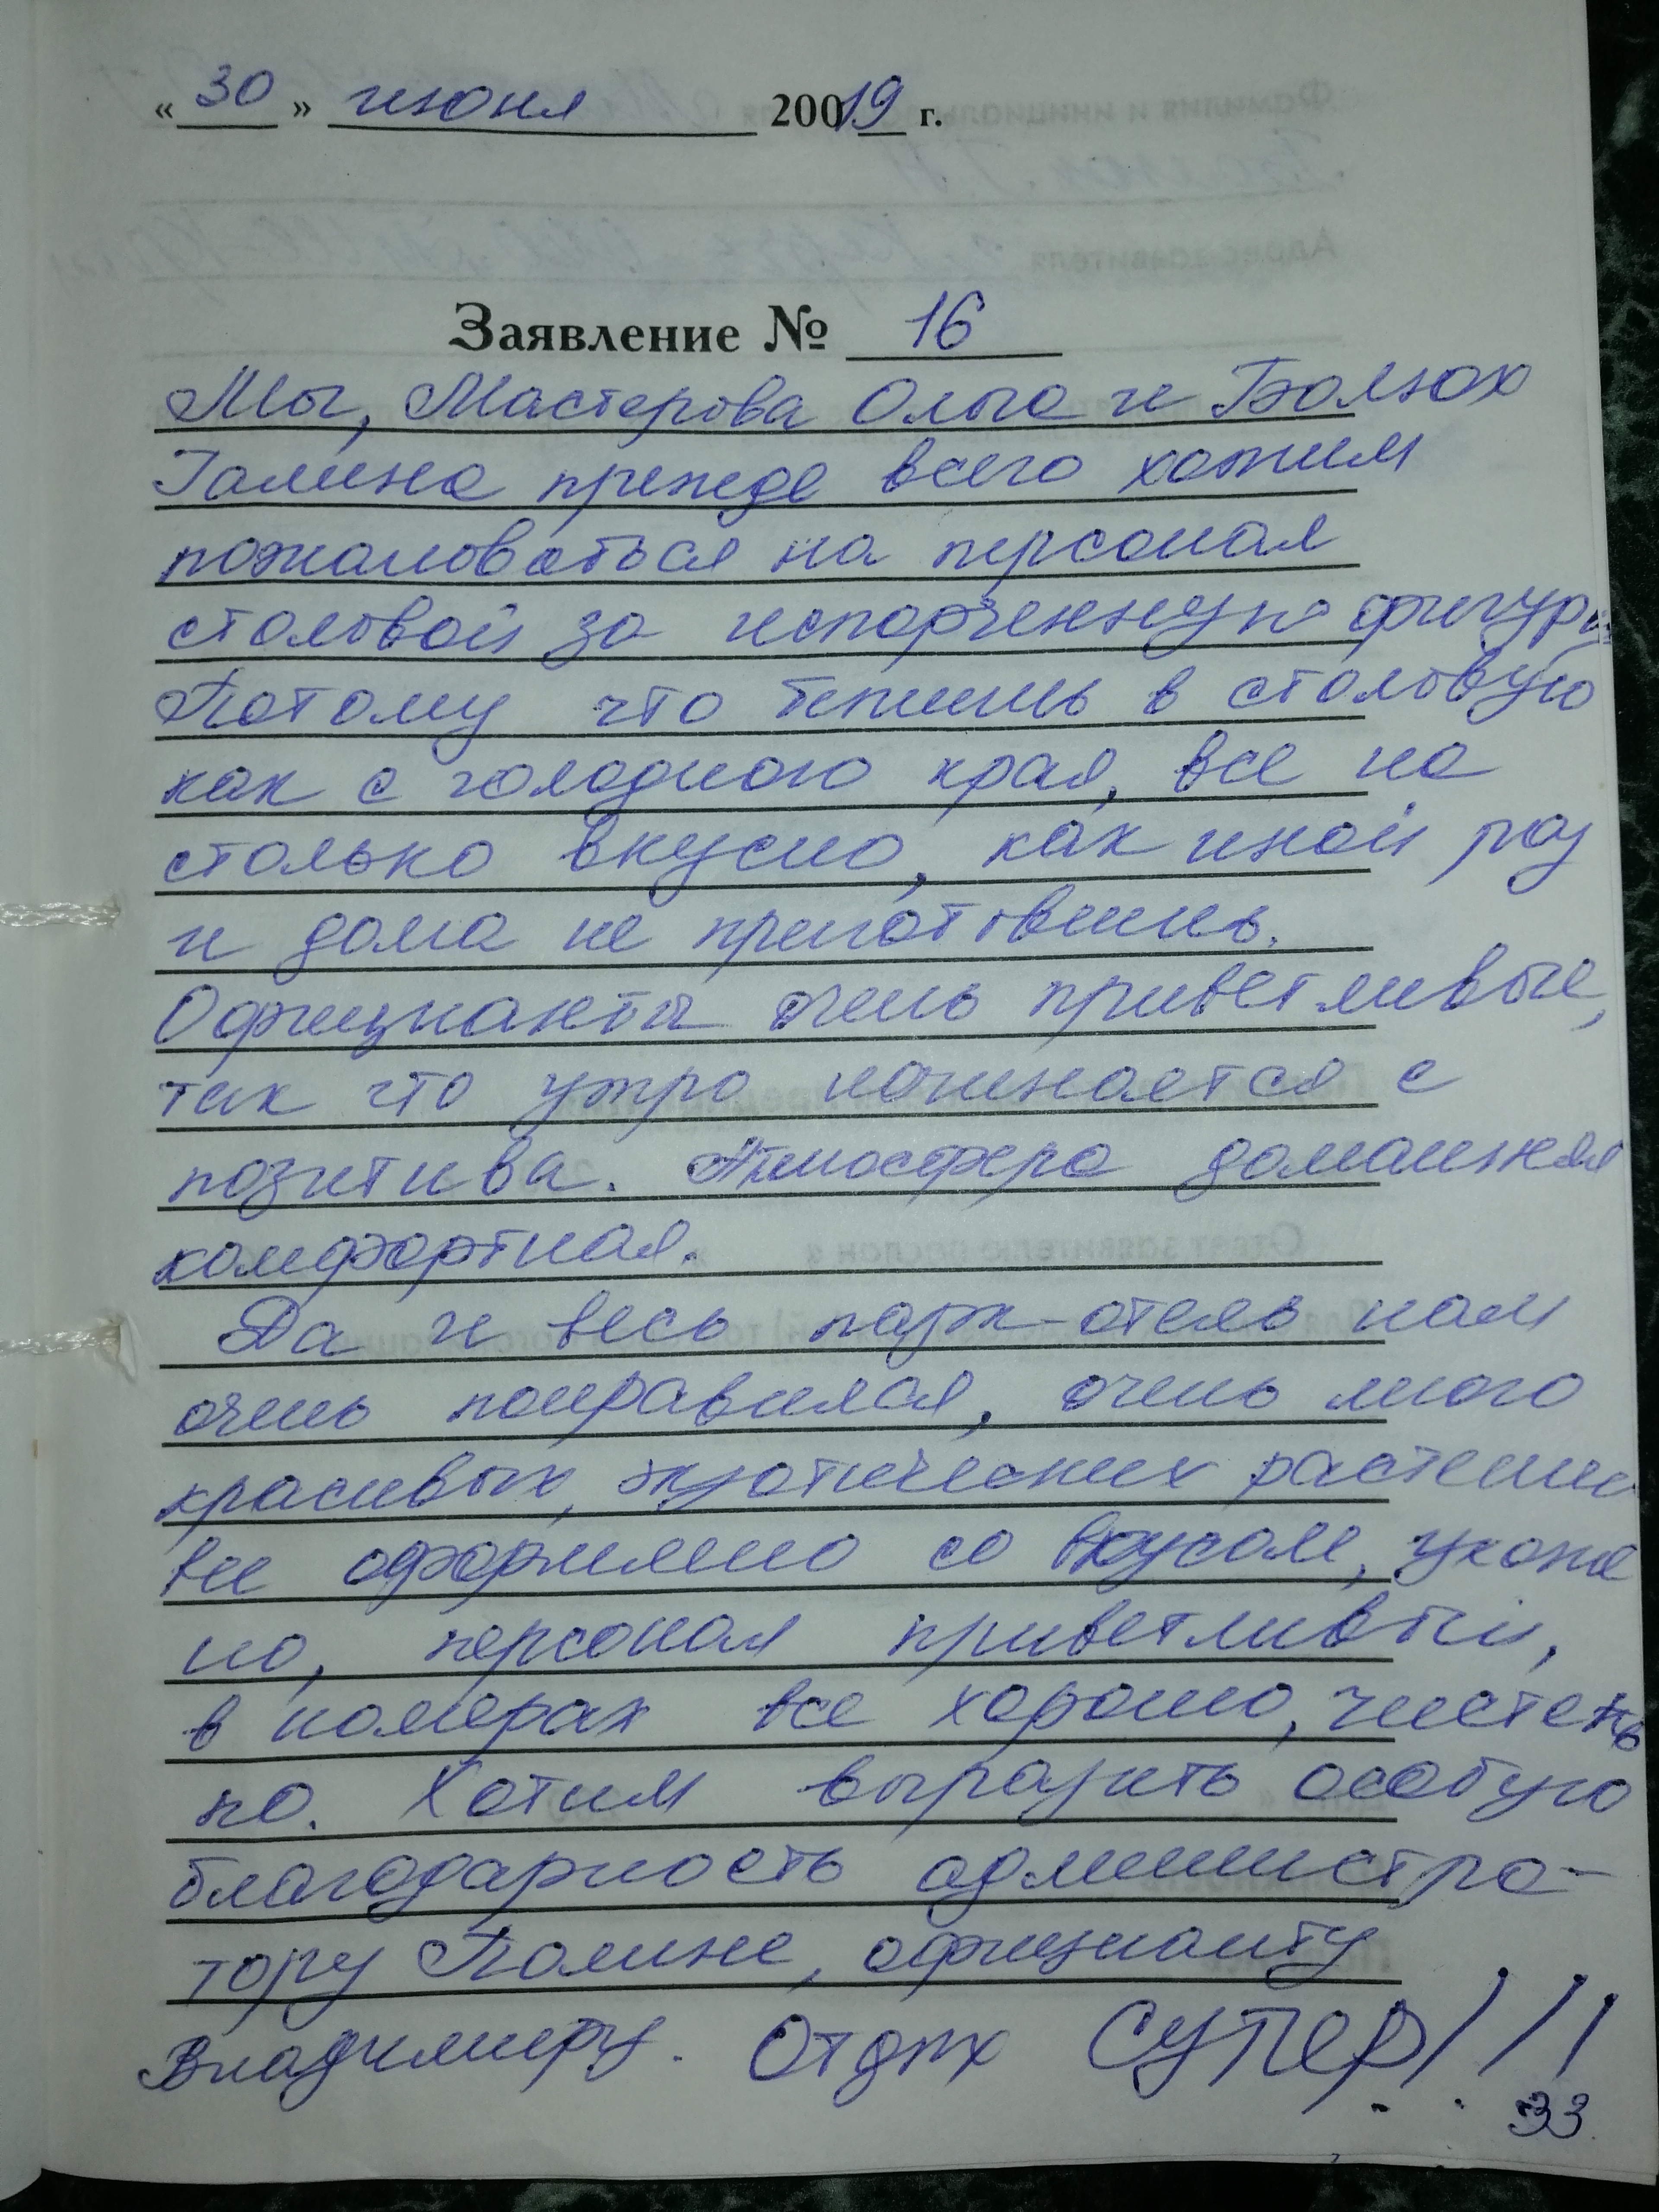 « 30 » июня 20019 г.
Заявление № 16
Мы, Мастерова Ольга и Болюх
Галина прежде всего хотим
пожаловаться на персонал
столовой за испорченную фигуру
Потому что бежишь в столовую
как с голодного края, все на
столько вкусно, как иной раз
и дома не приготовишь.
Официанты очень приветливые,
так что утро начинается с
позитива. Атмосфера домашняя
комфортная.
Да и весь парк-отель нам
очень понравился, очень много
красивых, экзотических растений
все оформлено со вкусом, ухоже
но, персонал приветливый,
в номерах все хорошо, чистень
ко. Хотим выразить особую
благодарность администра-
тору Полине, официанту
Владимиру. Отдых Супер!!!
33